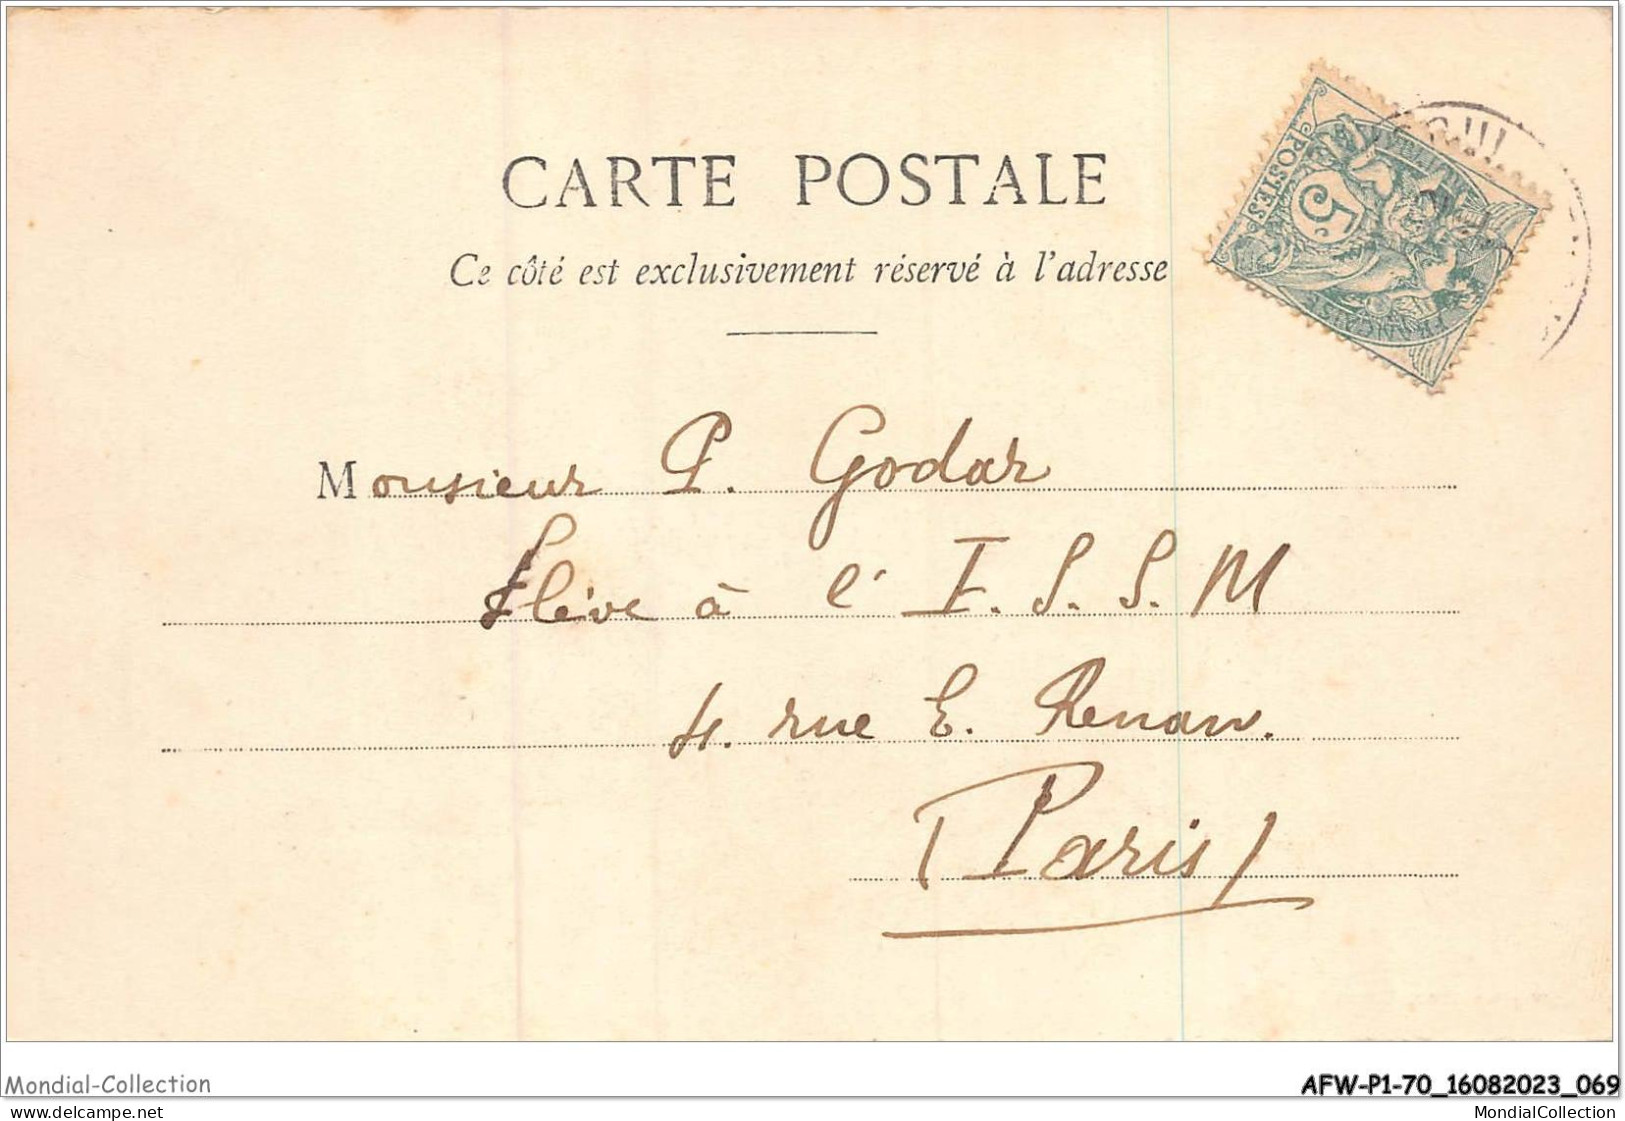 CARTE POSTALE
Ce côté est exclusivement réservé à l'adresse
5c.
POSTES
FRANÇAISE
Monsieur P. Godar
Elève à l' I. S. S. M
4. rue E. Renan.
Paris
Mondial-Collection
AFW-P1-70_16082023_069
www.delcampe.net
MondialCollection